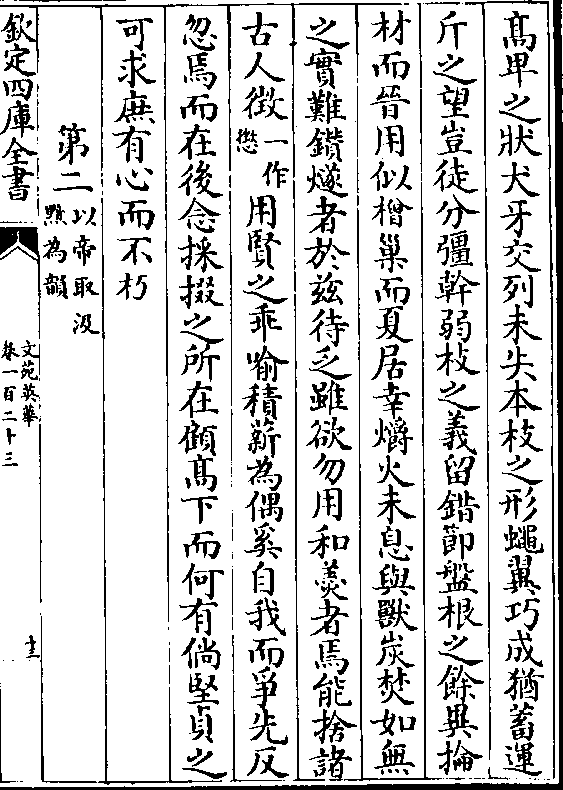 髙卑之狀犬牙交列未失本枝之形蠅翼巧成猶蓄運
斤之望豈徒分彊幹弱枝之義留錯節盤根之餘異掄
材而晉用似橧巢而夏居幸爝火未息與獸炭焚如無
之實難鑽燧者於兹待乏雖欲勿用和羮者焉能捨諸
古人徴一作懲用賢之乖喻積薪為偶奚自我而爭先反
忽焉而在後念採掇之所在顧髙下而何有倘堅貞之
可求庶有心而不朽
第二以帝取汲黯為韻
欽定四庫全書
文苑英華
卷一百二十三
十三